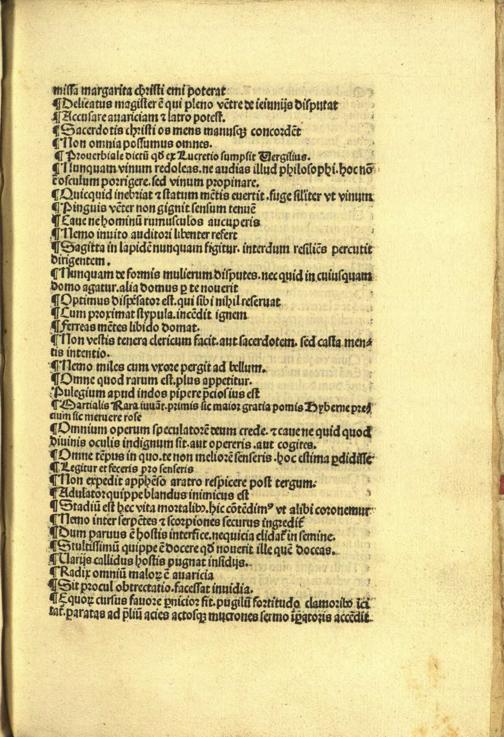 missa margarita christi emi poterat
¶Delicatus magister ē qui pleno vētre de ieiunijs disputat
¶Accusare auariciam ⁊ latro potest.
¶Sacerdotis christi os mens manusqꝫ concordēt
¶Non omnia possumus omnes.
¶ Prouerbiale dictū qđ ex Lucretio sumpsit Vergilius.
¶Nunquam vinum redoleas. ne audias illud philosophi. hoc nō
ē osculum porrigere. sed vinum propinare.
¶Quicquid inebriat ⁊ statum mētis euertit. fuge siliter vt vinum
¶Pinguis vēter non gignit sensum tenuē
¶Caue ne hominū rumusculos aucuperis
¶Nemo inuito auditori libenter refert
¶Sagitta in lapidē nunquam figitur. interdum resiliēs percutit
dirigentem.
¶Nunquam de formis mulierum disputes. nec quid in cuiusquam
domo agatur. alia domus ꝑ te nouerit
¶Optimus dispēsator est. qui sibi nihil reseruat
¶Cum proximat stypula. incēdit ignem
¶Ferreas mētes libido domat.
¶Non vestis tenera clericum facit. aut sacerdotem. sed casta men-
tis intentio.
¶Nemo miles cum vxore pergit ad bellum.
¶Omne quod rarum est. plus appetitur.
Pulegium apud indos pipere p̄ciosius est
¶Martialis Rara iuuāt. primis sic maior gratia pomis Hyberne pre
cium sic meruere rose
¶Omnium operum speculatorē deum crede. ⁊ caue ne quid quod
diuinis oculis indignum sit. aut opereris. aut cogites.
¶Omne tēpus in quo. te non meliorē senseris. hoc estima ꝑdidisse
¶Legitur et feceris pro senseris
¶Non expedit app̄hēso aratro respicere post tergum.
¶Adulator quippe blandus inimicus est
¶Stadiū est hec vita mortalibꝫ. hic cōtēdimꝰ vt alibi coronemur
¶Nemo inter serpētes ⁊ scorpiones securus ingredit̄
¶Dum paruus ē hostis interfice. nequicia elidat̄ in semine.
¶Stultissimū quippe ē docere qđ nouerit ille quē doceas.
¶Varijs callidus hostis pugnat insidijs.
¶Radix omniū maloꝝ ē auaricia
¶Sit procul obtrectatio. facessat inuidia.
¶Equoꝝ cursus fauore ꝑnicior fit. pugilū fortitudo clamoribꝫ ici
tat̄. ꝑaratas ad p̄liū acies actosqꝫ mucrones sermo īꝑatoris accēdit